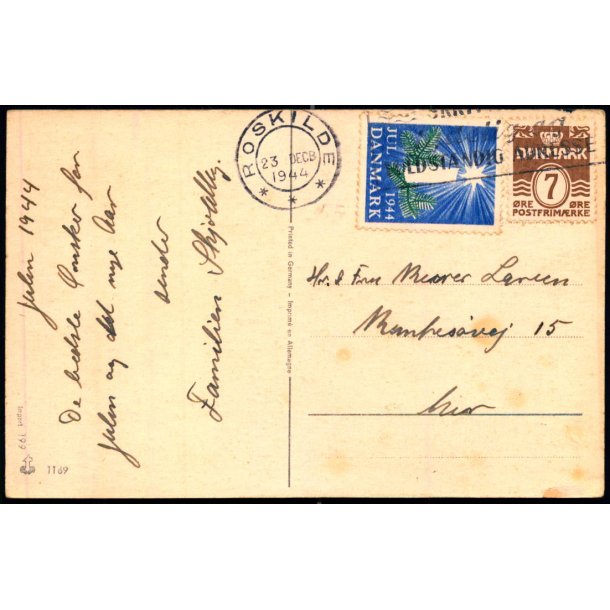 Julen 1944
De bedste Ønsker for
Julen og det nye Aar
sender
Familien
Import 199
1169
Printed in Germany – Imprimé en Allemagne
ROSKILDE
23 DECB
1944
JUL 1944
DANMARK
LDSTÆNDIG ADRESSE
DANMARK
7
ØRE ØRE
POSTFRIMÆRKE
Hr. & Fru Larsen
15
her